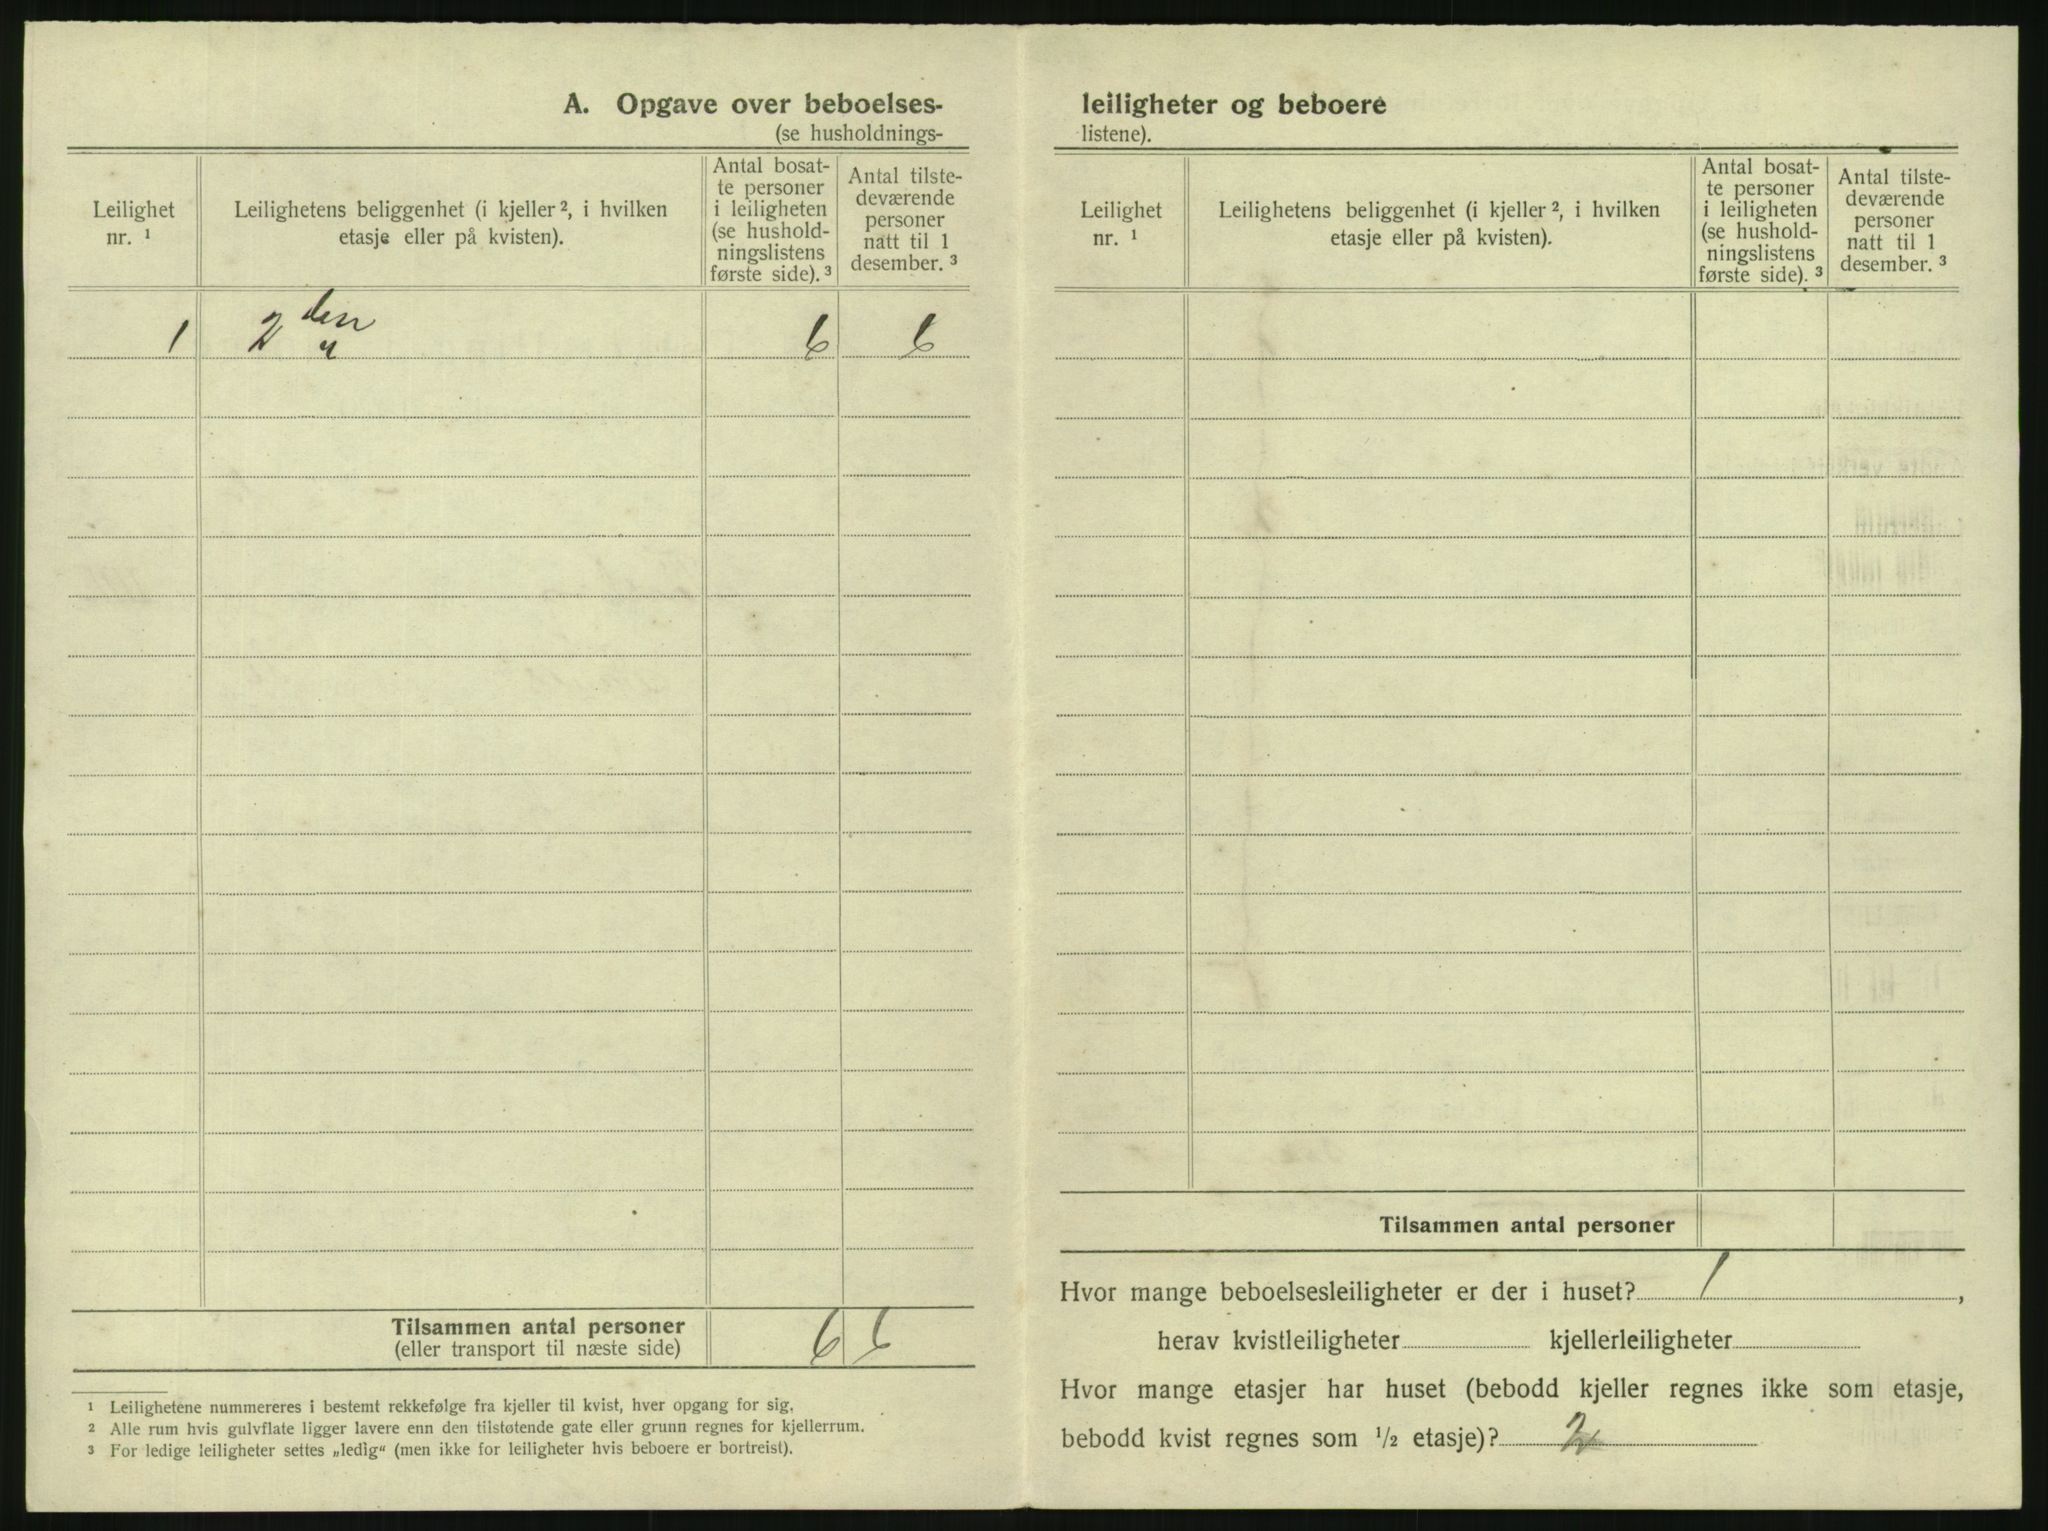 A. Opgave over beboelses-
(se husholdnings-
Leilighet
nr. ¹
Leilighetens beliggenhet (i kjeller ², i hvilken
etasje eller på kvisten).
Antal bosat-
te personer
i leiligheten
(se hushold-
ningslistens
første side). ³
Antal tilste-
deværende
personer
natt til 1
desember. ³
1 2 den " 6 6
Tilsammen antal personer 6 6
(eller transport til næste side)
¹ Leilighetene nummereres i bestemt rekkefølge fra kjeller til kvist, hver opgang for sig.
² Alle rum hvis gulvflate ligger lavere enn den tilstøtende gate eller grunn regnes for kjellerrum.
³ For ledige leiligheter settes „ledig“ (men ikke for leiligheter hvis beboere er bortreist).
leiligheter og beboere
listene).
Leilighet
nr. ¹
Leilighetens beliggenhet (i kjeller ², i hvilken
etasje eller på kvisten).
Antal bosat-
te personer
i leiligheten
(se hushold-
ningslistens
første side). ³
Antal tilste-
deværende
personer
natt til 1
desember. ³
Tilsammen antal personer
Hvor mange beboelsesleiligheter er der i huset? 1,
herav kvistleiligheter kjellerleiligheter
Hvor mange etasjer har huset (bebodd kjeller regnes ikke som etasje,
bebodd kvist regnes som ½ etasje)? 2